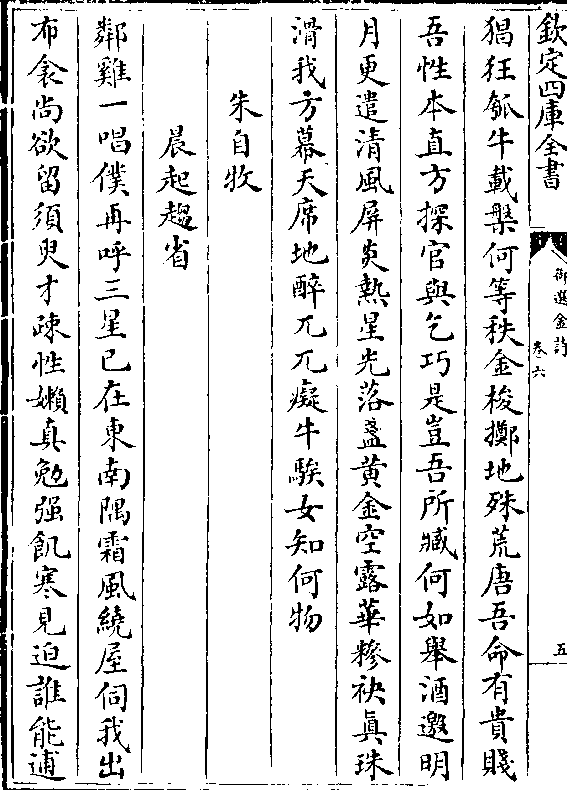 欽定四庫全書
御選金詩
卷六
五
猖狂瓠牛載槩何等秩金梭擲地殊荒唐吾命有貴賤
吾性本直方探官與乞巧是豈吾所臧何如舉酒邀明
月更遣清風屏炎熱星光落盞黃金空露華糝袂眞珠
滑我方幕天席地醉兀兀癡牛騃女知何物
朱自牧
晨起趨省
鄰雞一唱僕再呼三星已在東南隅霜風繞屋伺我出
布衾尚欲留須臾才疎性嬾真勉强飢寒見迫誰能逋